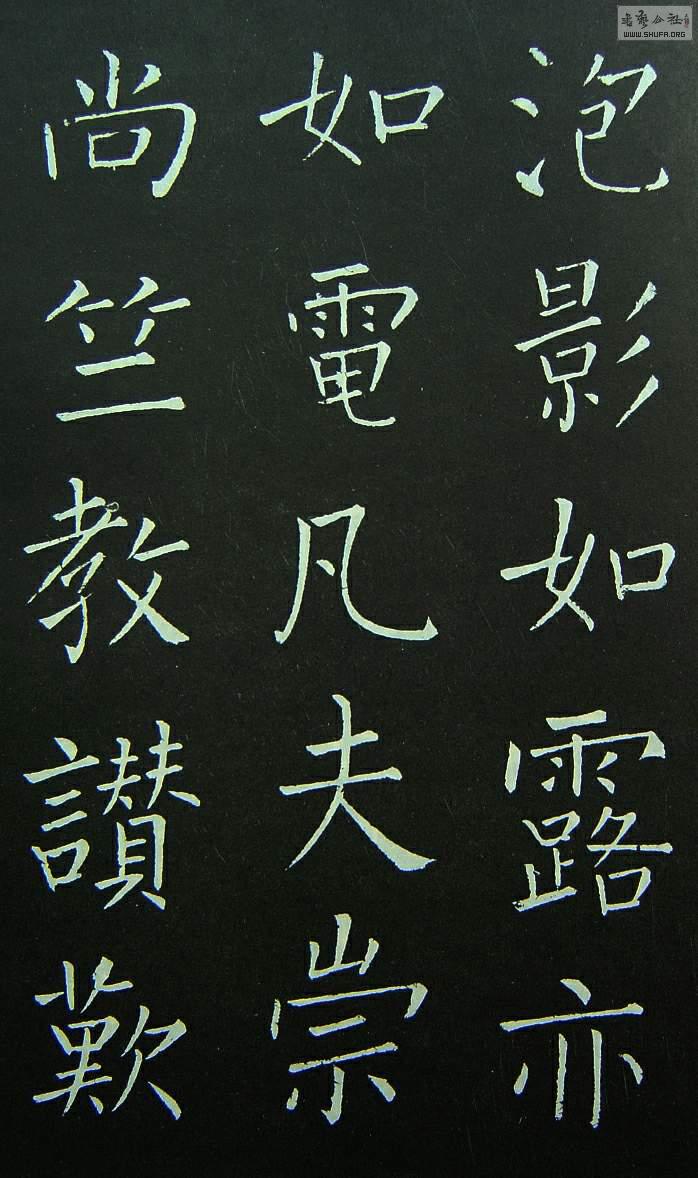 泡影如露亦
如電凡夫崇
尚竺教讃歎
書艺公社
WWW.SHUFA.ORG